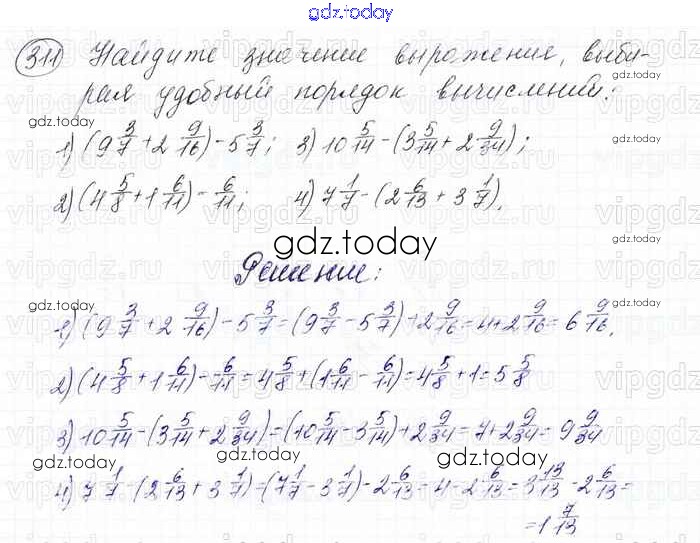 gdz.today
311 Найдите значение выражение, выби-
рая удобный порядок вычислений:
gdz.today
1) (9 3/7 + 2 9/16) - 5 3/7; 3) 10 5/14 - (3 5/14 + 2 9/34);
2) (4 5/8 + 1 6/11) - 6/11; 4) 7 1/7 - (2 6/13 + 3 1/7).
gdz.today
Решение:
1) (9 3/7 + 2 9/16) - 5 3/7 = (9 3/7 - 5 3/7) + 2 9/16 = 4 + 2 9/16 = 6 9/16.
2) (4 5/8 + 1 6/11) - 6/11 = 4 5/8 + (1 6/11 - 6/11) = 4 5/8 + 1 = 5 5/8
3) 10 5/14 - (3 5/14 + 2 9/34) = (10 5/14 - 3 5/14) + 2 9/34 = 7 + 2 9/34 = 9 9/34
gdz.today
4) 7 1/7 - (2 6/13 + 3 1/7) = (7 1/7 - 3 1/7) - 2 6/13 = 4 - 2 6/13 = 3 13/13 - 2 6/13 =
= 1 7/13
gdz.today